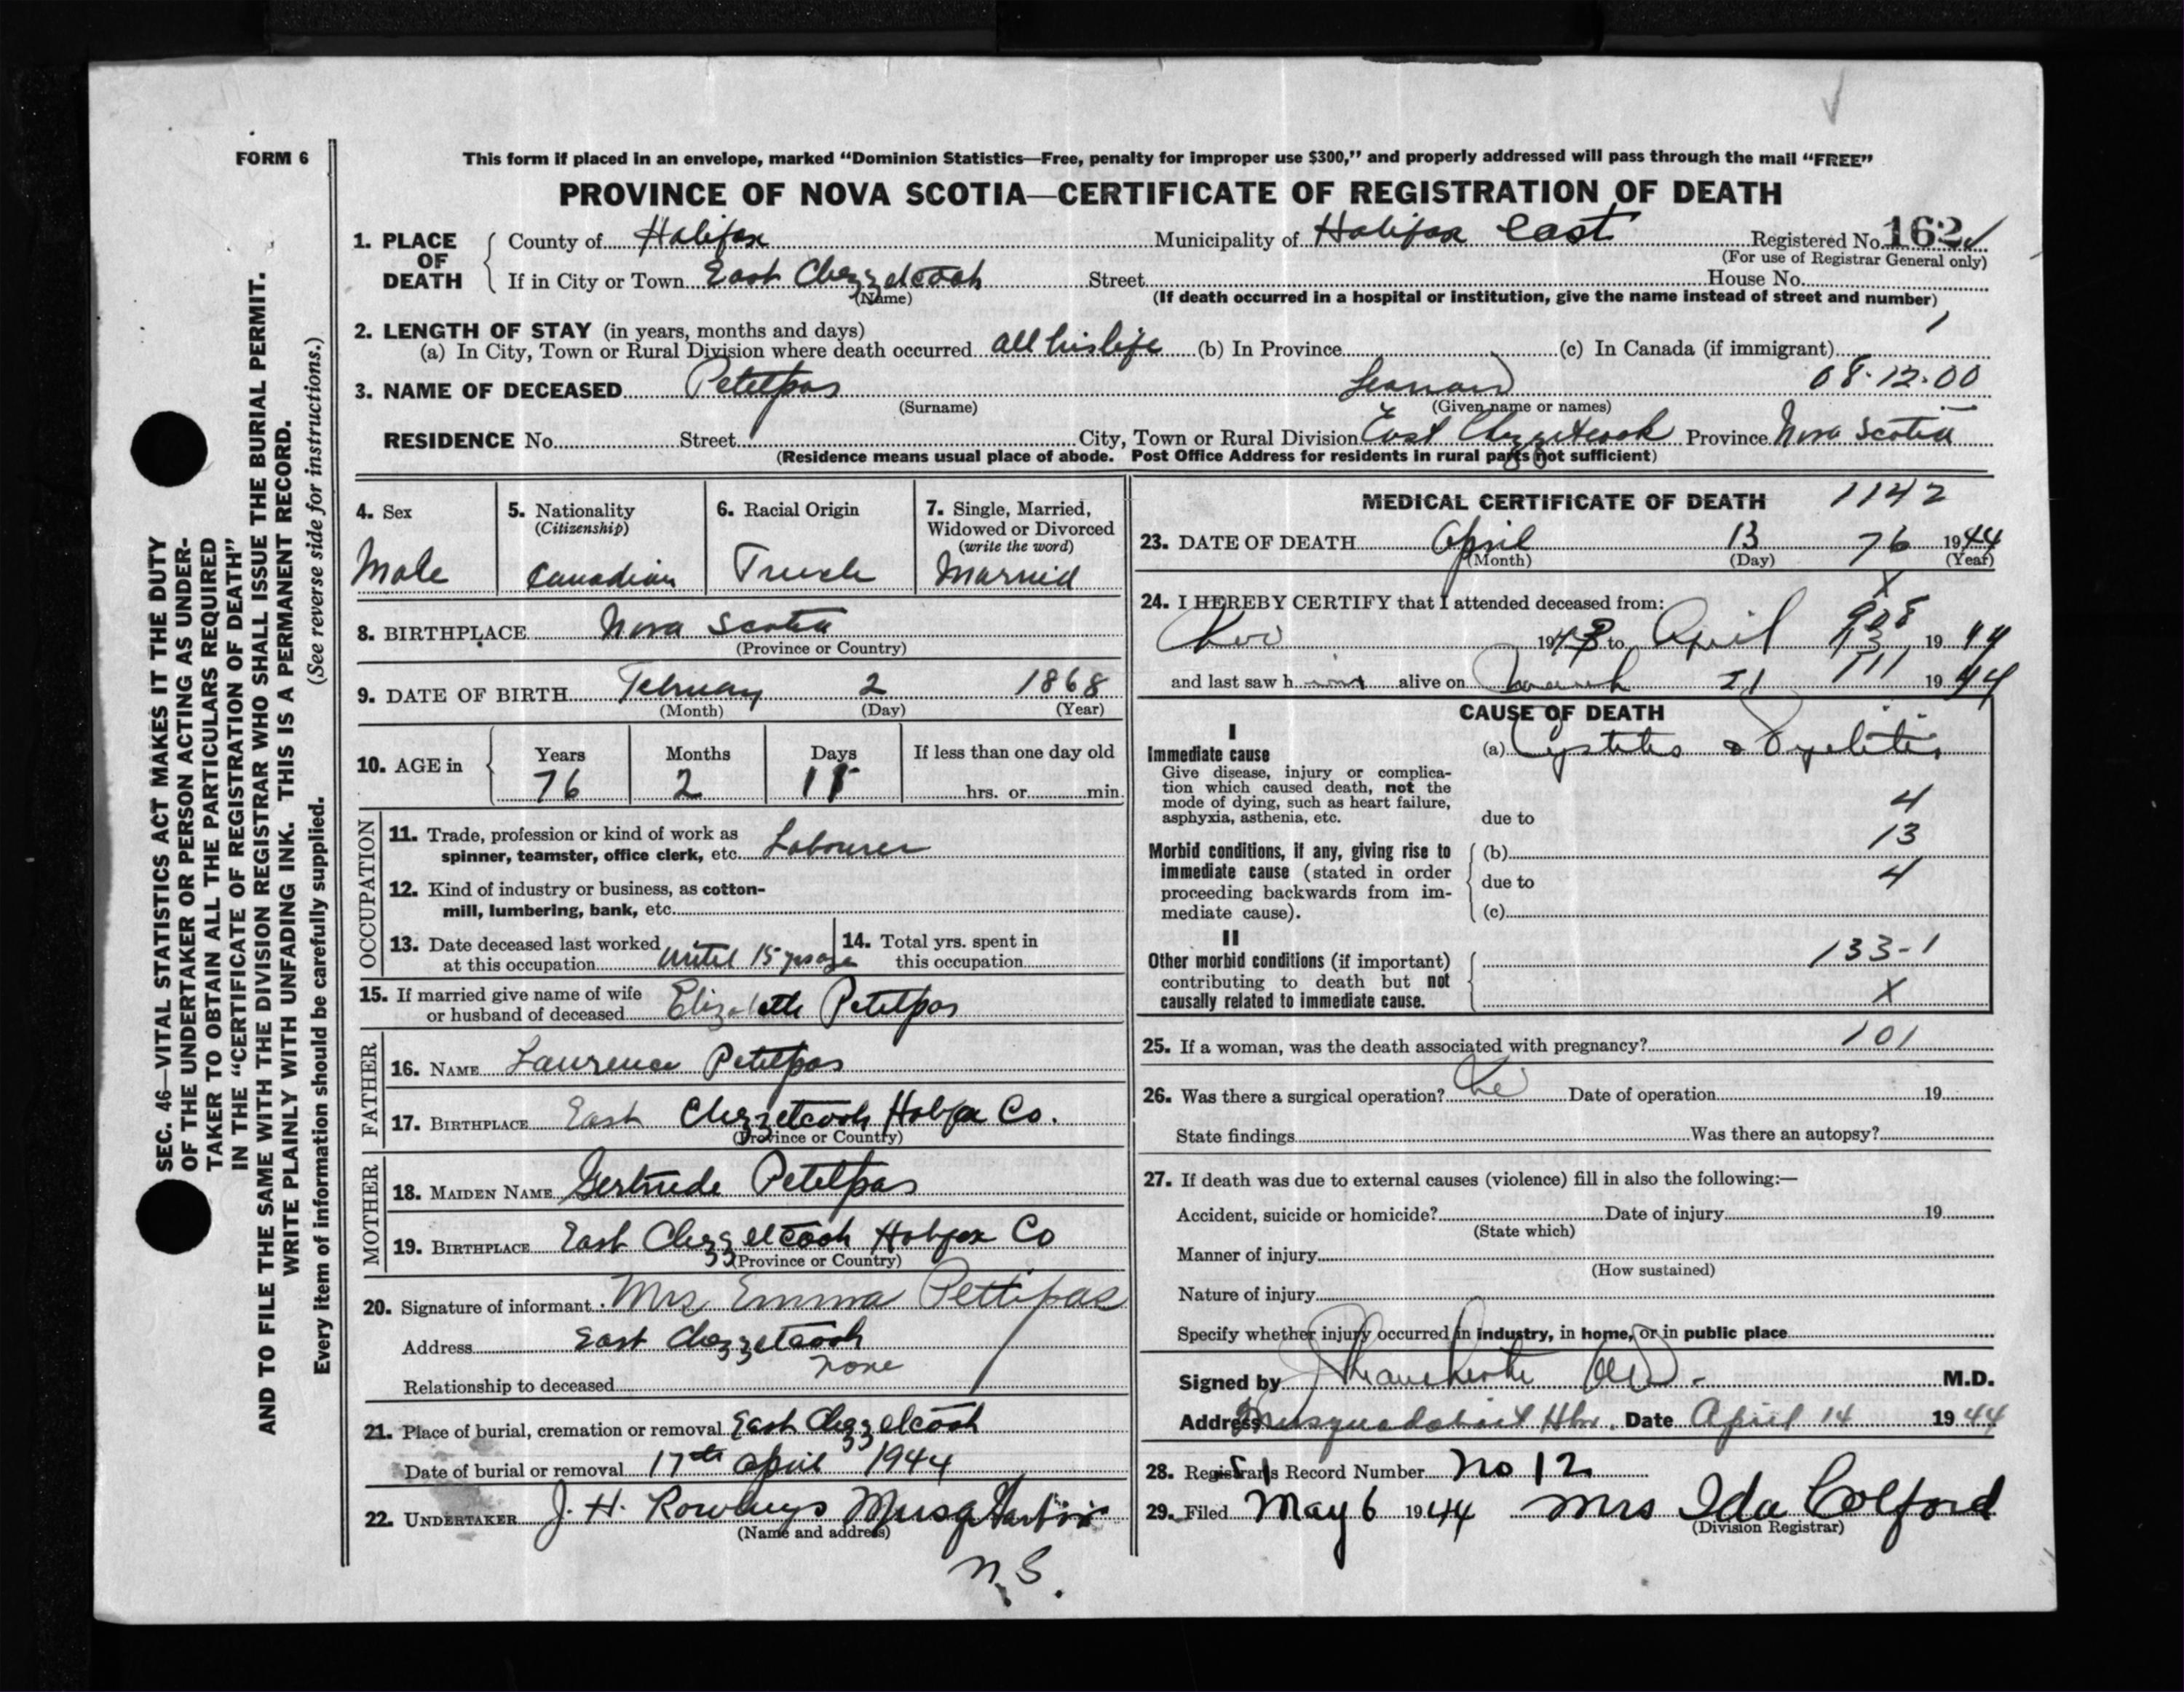 FORM 6
This form if placed in an envelope, marked “Dominion Statistics—Free, penalty for improper use $300,” and properly addressed will pass through the mail “FREE”
PROVINCE OF NOVA SCOTIA—CERTIFICATE OF REGISTRATION OF DEATH
1. PLACE OF DEATH County of Halifax Municipality of Halifax East Registered No. 162
(For use of Registrar General only)
If in City or Town East Chezzetcook Street House No.
(Name) (If death occurred in a hospital or institution, give the name instead of street and number)
2. LENGTH OF STAY (in years, months and days)
(a) In City, Town or Rural Division where death occurred all his life (b) In Province (c) In Canada (if immigrant)
3. NAME OF DECEASED Petitpas 08-12-00
(Surname) (Given name or names)
RESIDENCE No. Street City, Town or Rural Division East Chezzetcook Province Nova Scotia
(Residence means usual place of abode. Post Office Address for residents in rural parts not sufficient)
4. Sex Male
5. Nationality (Citizenship) Canadian
6. Racial Origin
7. Single, Married, Widowed or Divorced (write the word) Married
8. BIRTHPLACE Nova Scotia
(Province or Country)
9. DATE OF BIRTH February 2 1868
(Month) (Day) (Year)
10. AGE in Years Months Days If less than one day old
76 2 hrs. or min.
OCCUPATION
11. Trade, profession or kind of work as
spinner, teamster, office clerk, etc. Labourer
12. Kind of industry or business, as cotton-
mill, lumbering, bank, etc.
13. Date deceased last worked
at this occupation until 15 yrs ago
14. Total yrs. spent in
this occupation
15. If married give name of wife
or husband of deceased Elizabeth Petitpas
FATHER
16. NAME Laurence Petitpas
17. BIRTHPLACE East Chezzetcook Halifax Co.
(Province or Country)
MOTHER
18. MAIDEN NAME Gertrude Petitpas
19. BIRTHPLACE East Chezzetcook Halifax Co
(Province or Country)
20. Signature of informant Mrs Emma Pettipas
Address East Chezzetcook
Relationship to deceased none
21. Place of burial, cremation or removal East Chezzetcook
Date of burial or removal 17th April 1944
22. UNDERTAKER J. H. Musq
(Name and address)
N.S.
MEDICAL CERTIFICATE OF DEATH 1142
23. DATE OF DEATH April 13 76 1944
(Month) (Day) (Year)
X
24. I HEREBY CERTIFY that I attended deceased from: 908
Nov 1943 to April 13 1944
and last saw him alive on March 21 1944
CAUSE OF DEATH
I
Immediate cause
Give disease, injury or complica-
tion which caused death, not the
mode of dying, such as heart failure,
asphyxia, asthenia, etc.
(a) Cystitis & Pyelitis
due to 4
Morbid conditions, if any, giving rise to
immediate cause (stated in order
proceeding backwards from im-
mediate cause).
(b) 13
due to 4
(c)
II
Other morbid conditions (if important)
contributing to death but not
causally related to immediate cause.
133-1
X
25. If a woman, was the death associated with pregnancy? 101
26. Was there a surgical operation? No Date of operation 19
State findings Was there an autopsy?
27. If death was due to external causes (violence) fill in also the following:—
Accident, suicide or homicide? Date of injury 19
(State which)
Manner of injury
(How sustained)
Nature of injury
Specify whether injury occurred in industry, in home, or in public place
Signed by M.D.
Address Musquodoboit Hbr. Date April 14 1944
28. Registrar's Record Number No 12
29. Filed May 6 1944 Mrs Ida Colford
(Division Registrar)
SEC. 46—VITAL STATISTICS ACT MAKES IT THE DUTY
OF THE UNDERTAKER OR PERSON ACTING AS UNDER-
TAKER TO OBTAIN ALL THE PARTICULARS REQUIRED
IN THE “CERTIFICATE OF REGISTRATION OF DEATH”
AND TO FILE THE SAME WITH THE DIVISION REGISTRAR WHO SHALL ISSUE THE BURIAL PERMIT.
WRITE PLAINLY WITH UNFADING INK. THIS IS A PERMANENT RECORD.
Every item of information should be carefully supplied. (See reverse side for instructions.)